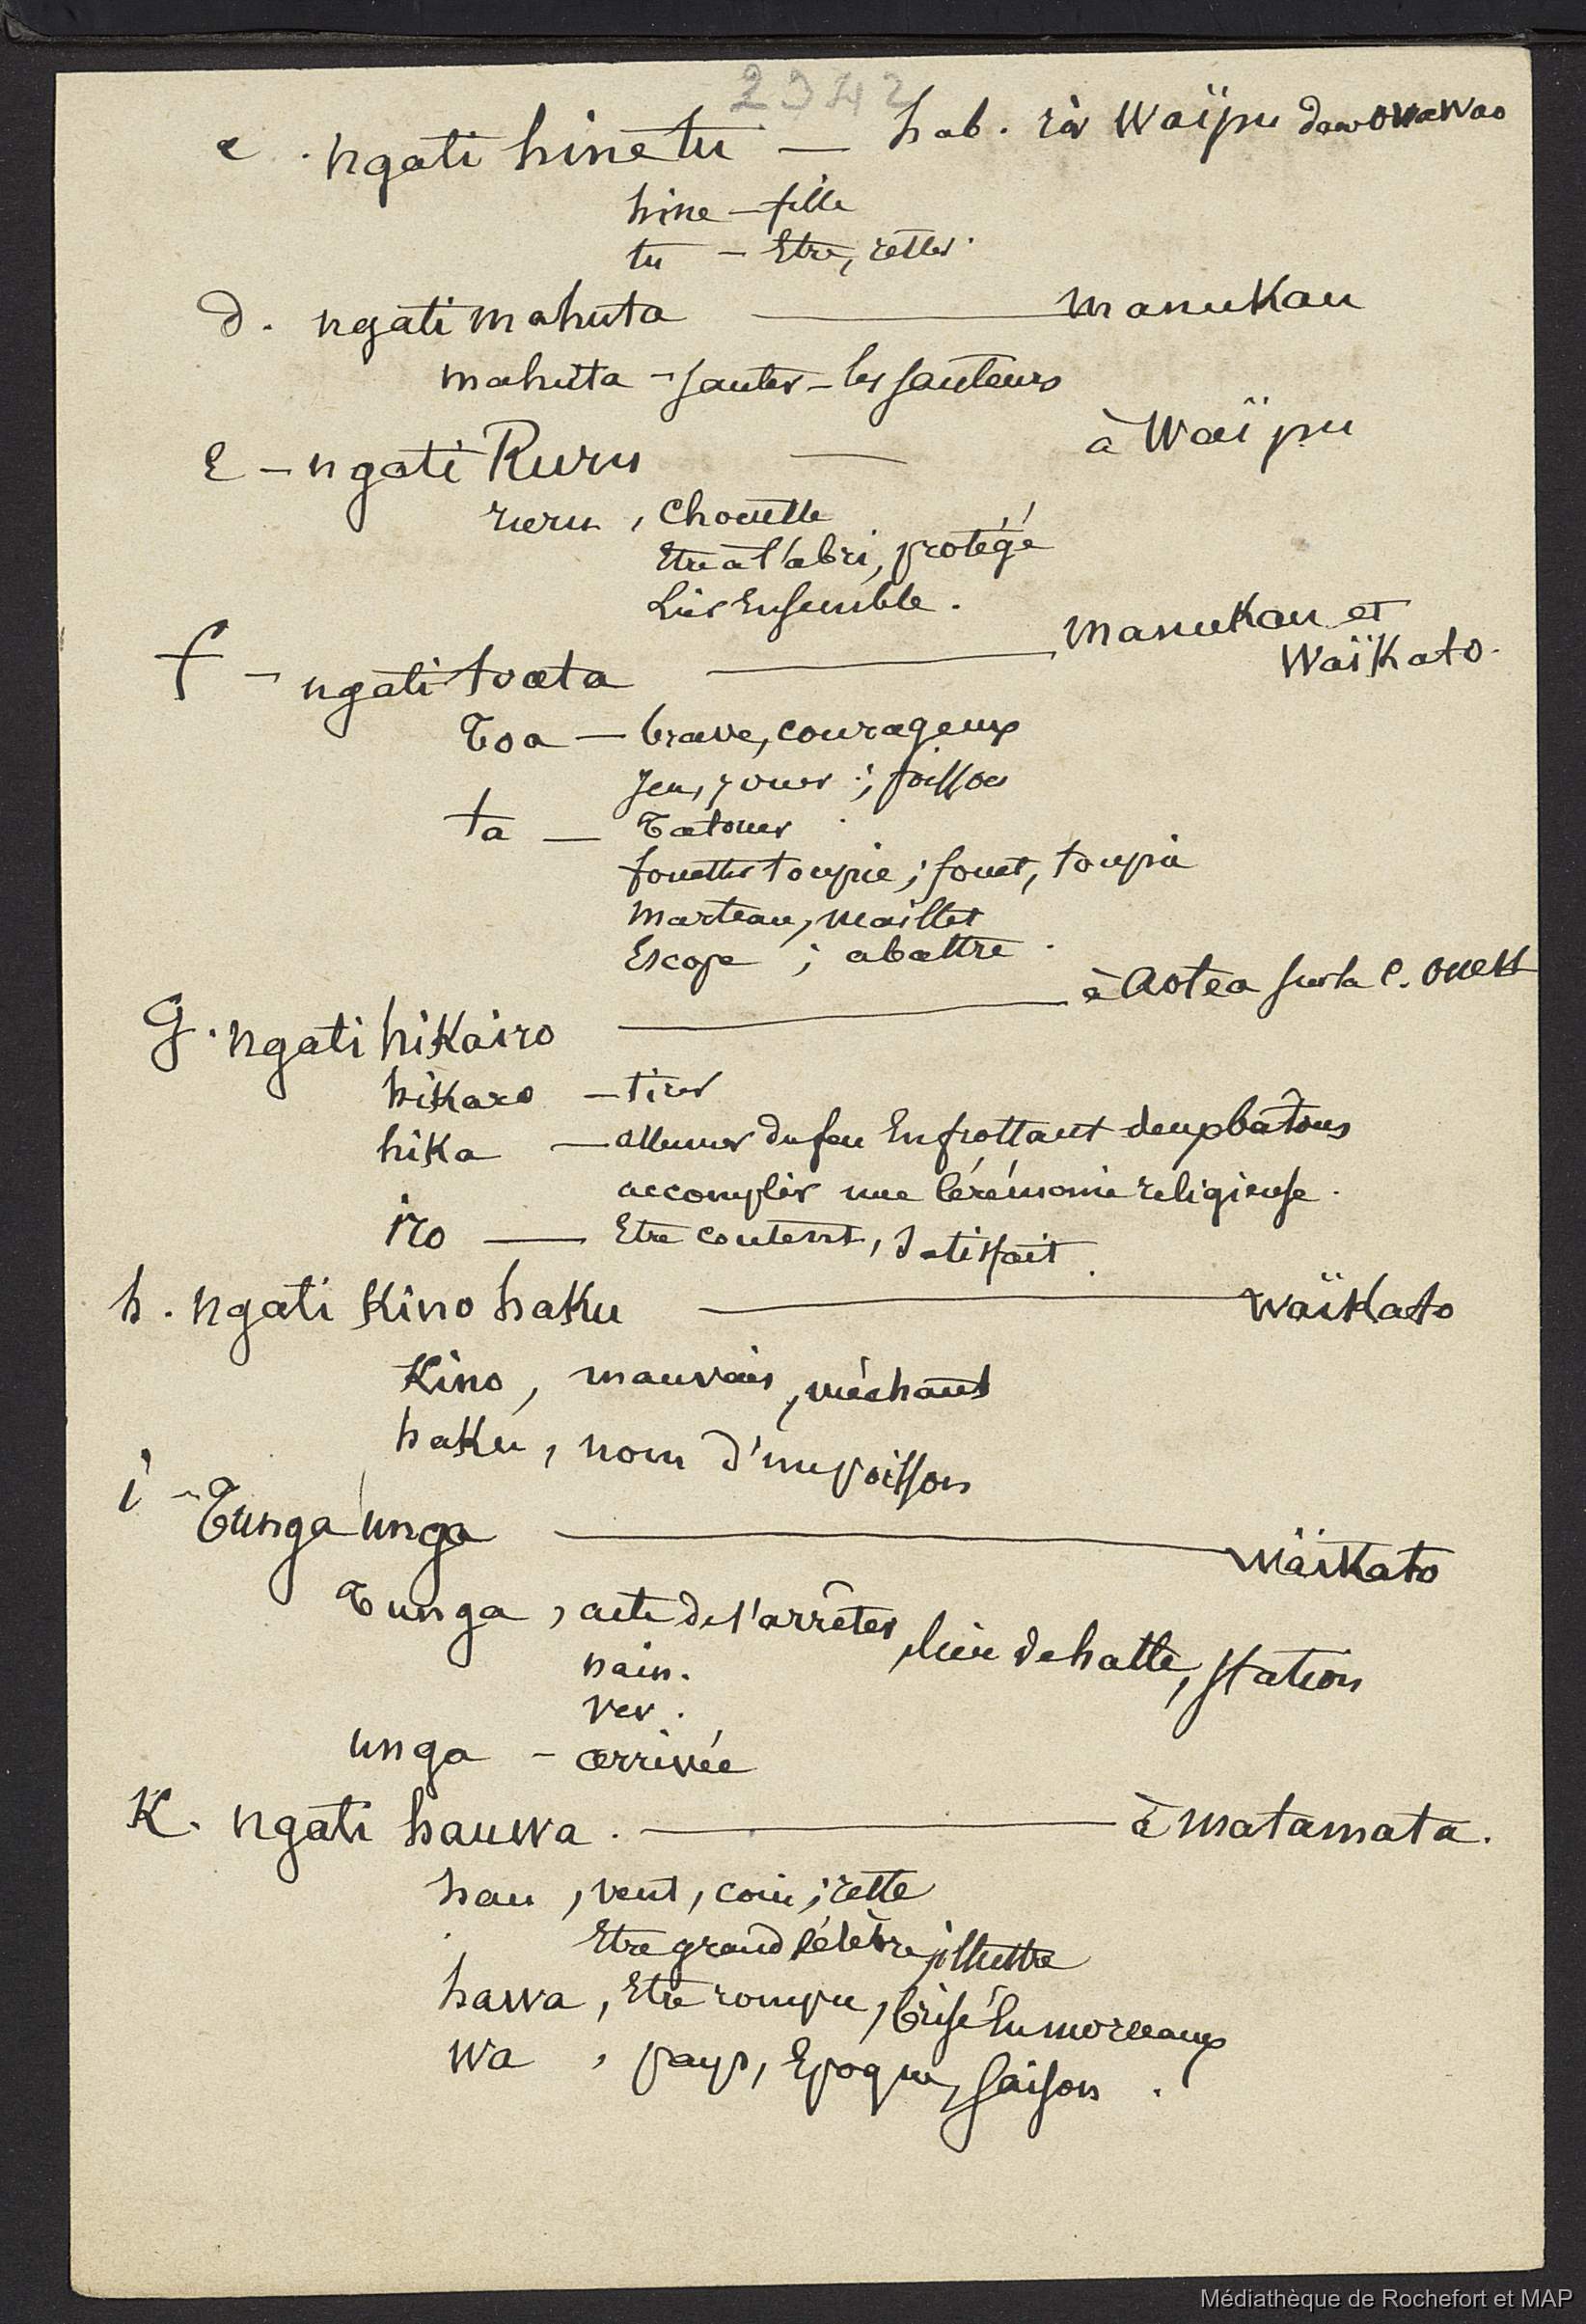 2942
c . ngati hine tu — hab. à Waïpu dans
hine — fille
tu — Etre, rester.
d . ngati mahuta — manukau
mahuta - sauter - les sauteurs
E - ngati Ruru — à Waïpu
ruru , Chouette
Etre à l'abri, protégé
Lier Ensemble .
f - ngati toata — manukau et
Waïkato.
Toa — brave, courageux
jeu, jouer ; poisson
ta — Tatouer
fouetter toupie ; fouet, toupie
marteau, maillet
Escope ; abattre .
G . ngati hikairo — à Aotea sur la C. ouest
hikaro — tirer
hika — allumer du feu En frottant deux batons
accomplir une Cérémonie religieuse .
iro — Etre content, satisfait .
h . ngati kino haku — Waïkato
Kino , mauvais , méchant
haku , nom d'un poisson
i - Tunga unga — Waïkato
Tunga , acte de s'arrêter , lieu de halte, station
nain .
ver .
unga - arrivée
K . ngati hauwa . — à matamata .
hau , vent , coin ; reste
Etre grand célèbre illustre
hawa , Etre rompu , brisé En morceaux
wa , pays, Epoque, saison .
Médiathèque de Rochefort et MAP